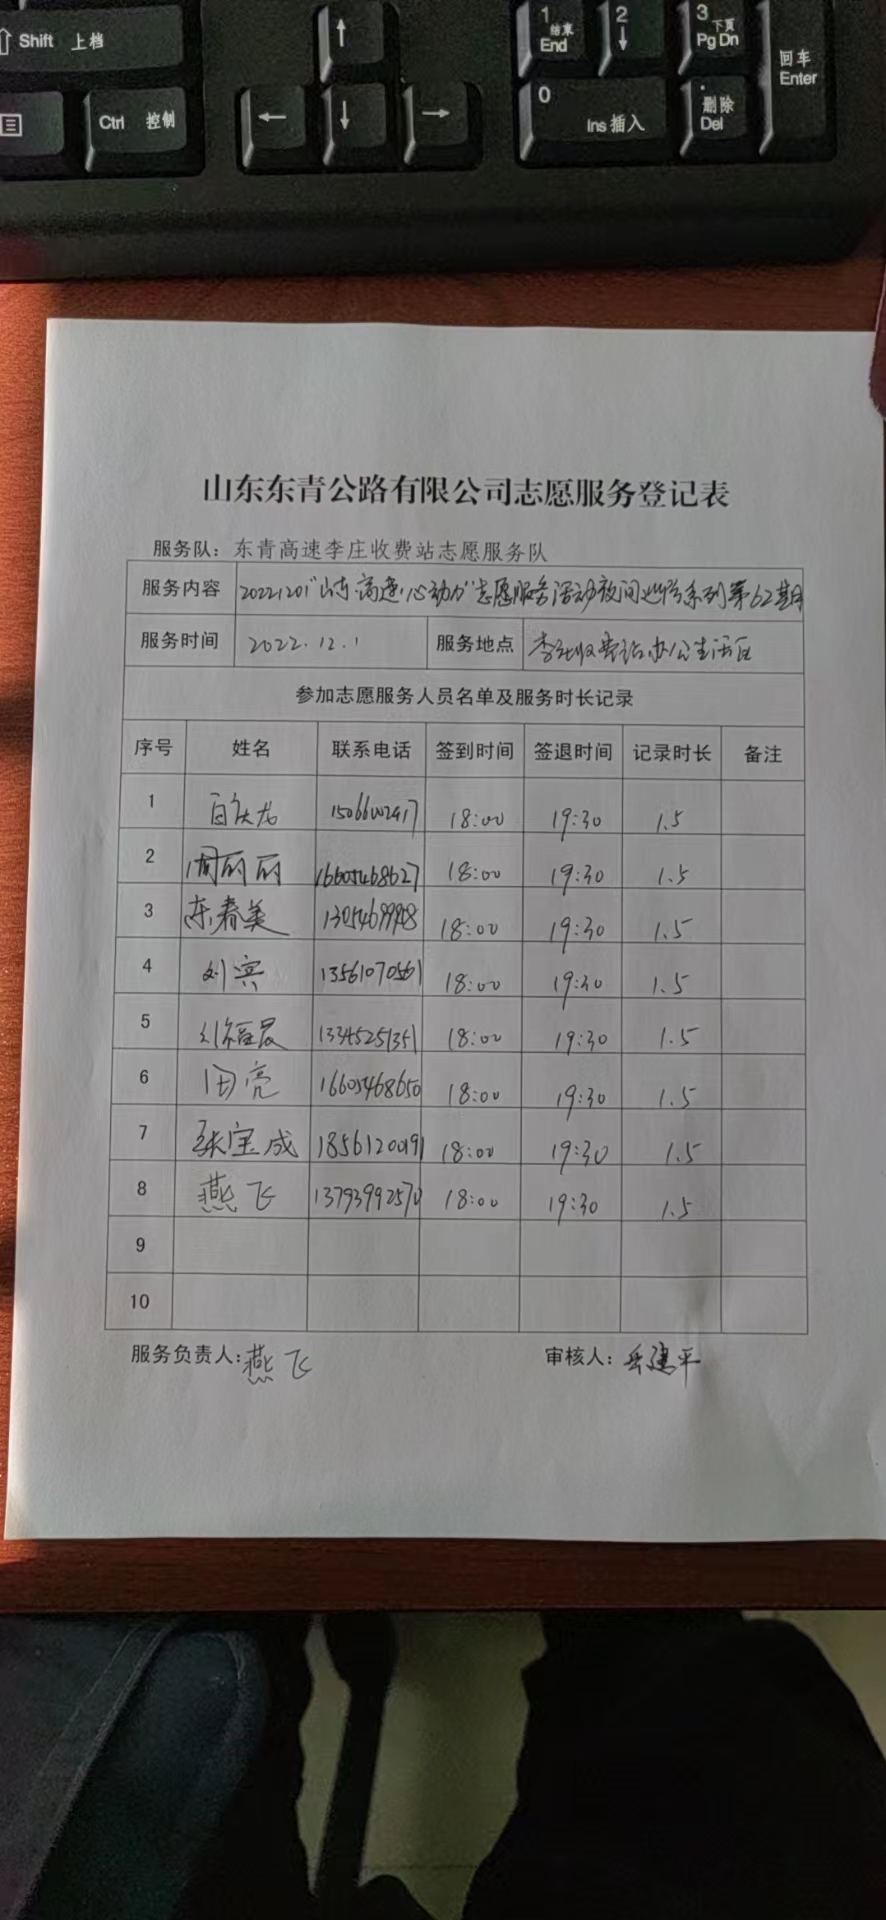 Shift 上档
↑
1 结束 End
2 ↓
3 下页 Pg Dn
回车 Enter
Ctrl 控制
←
↓
→
0 Ins 插入
. 删除 Del
山东东青公路有限公司志愿服务登记表
服务队：东青高速李庄收费站志愿服务队
服务内容 20221201"山东高速·心动力"志愿服务活动夜间巡逻系列第62期
服务时间 2022.12.1 服务地点 李庄收费站办公生活区
参加志愿服务人员名单及服务时长记录
序号 姓名 联系电话 签到时间 签退时间 记录时长 备注
1 18:00 19:30 1.5
2 周丽丽 16605468627 18:00 19:30 1.5
3 陈春美 18:00 19:30 1.5
4 刘宾 13561070561 18:00 19:30 1.5
5 13345251351 18:00 19:30 1.5
6 田亮 16605468650 18:00 19:30 1.5
7 张宝成 18561200191 18:00 19:30 1.5
8 燕飞 13793992570 18:00 19:30 1.5
9
10
服务负责人：燕飞 审核人：岳建平